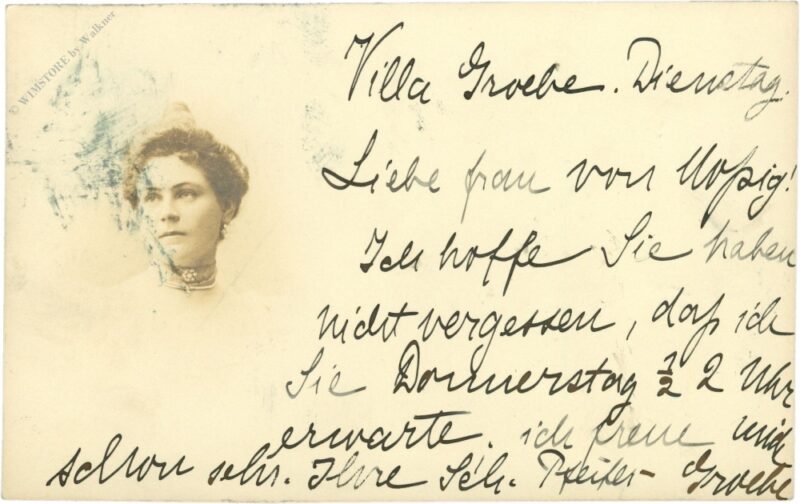 © WIMSTORE by Walkner
Villa Groebe. Dienstag.
Liebe Frau von Moßig!
Ich hoffe Sie haben
nicht vergessen, daß ich
Sie Donnerstag ½ 2 Uhr
erwarte. ich freue mich
schon sehr. Ihre Pfeifer-Groebe